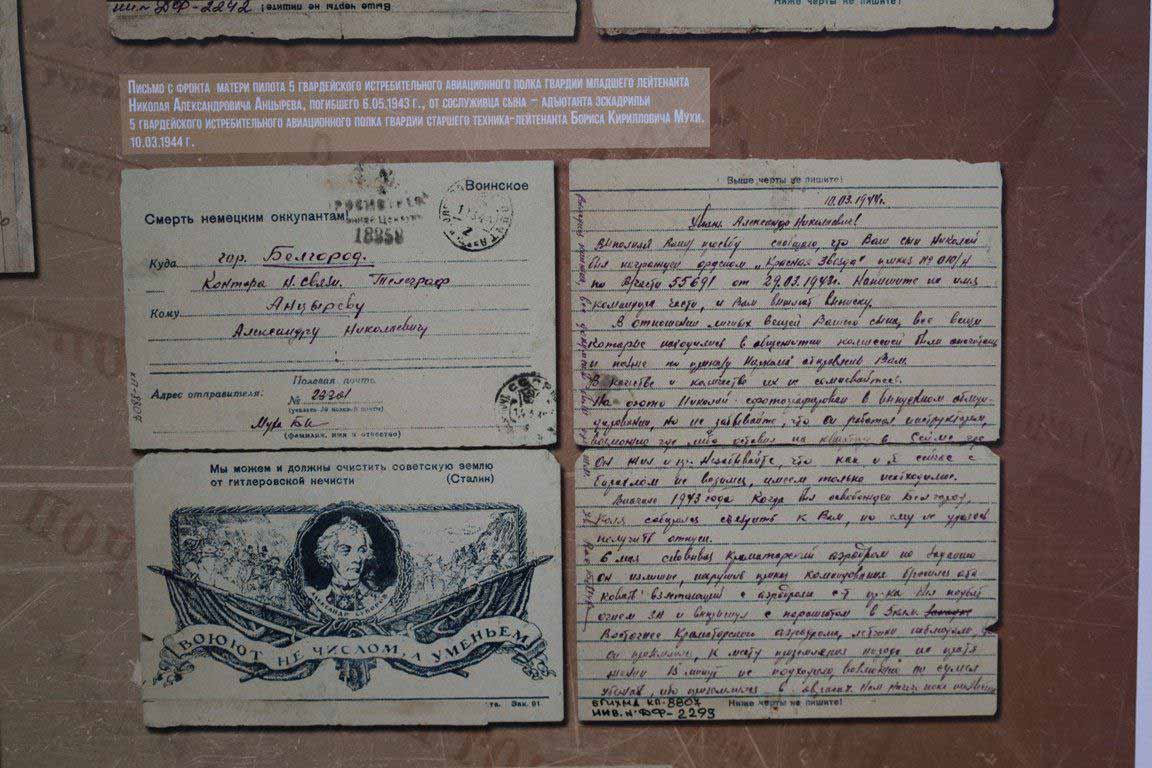 Инв. № ДФ-2242
Выше черты не пишите!
Ниже черты не пишите!
Письмо с фронта матери пилота 5 гвардейского истребительного авиационного полка гвардии младшего лейтенанта
Николая Александровича Анцырева, погибшего 6.05.1943 г., от сослуживца сына – адъютанта эскадрильи
5 гвардейского истребительного авиационного полка гвардии старшего техника-лейтенанта Бориса Кирилловича Мухи.
10.03.1944 г.
Воинское
Смерть немецким оккупантам!
18358
Куда гор. Белгород.
Контора Н. связи. Телеграф
Кому Анцыреву
Александру Николаевичу
Полевая почта
Адрес отправителя: № 23301
(фамилия, имя и отчество)
Муха Б.К.
Мы можем и должны очистить советскую землю
от гитлеровской нечисти (Сталин)
ВОЮЮТ НЕ ЧИСЛОМ, А УМЕНЬЕМ
Зак. 91
Выше черты не пишите!
10.03.1944г.
Уваж. Александр Николаевич!
Выполняя Вашу просьбу сообщаю, что Ваш сын Николай
был награжден орденом "Красная Звезда" приказ № 010/н
по 55691 от 29.03.1943г. Напишите на имя
командира части, и Вам вышлют выписку.
В отношении личных вещей Вашего сына, все вещи
которые находились в общежитии комиссией были
и по приказу Наркома отправлены Вам.
В качестве и количестве их не сомневайтесь.
На фото Николай сфотографирован в выпускном обмун-
дировании, но не забывайте, что он работал инструктором,
возможно где либо оставил на квартире в Сейме где
он жил и пр. Не забывайте, что как и я сейчас с
барахлом не возимся, имеем только необходимое.
Вначале 1943 года когда был освобожден Белгород,
Коля собирался съездить к Вам, но ему не удалось
получить отпуск.
6 мая Краматорский аэродром по заданию
он нарушив приказ командования бросился ата
ковать взлетающий с аэродрома с-т пр-ка был подбит
огнем ЗА и выпрыгнул с парашютом в 3 км.
Восточнее Краматорского аэродрома, летчики наблюдали, что
он приземлился, к месту приземления
минут не подходило, возможно он сумел
Ниже черты не пишите!
БГИХМД КП-8807
ИНВ. № ДФ-2293